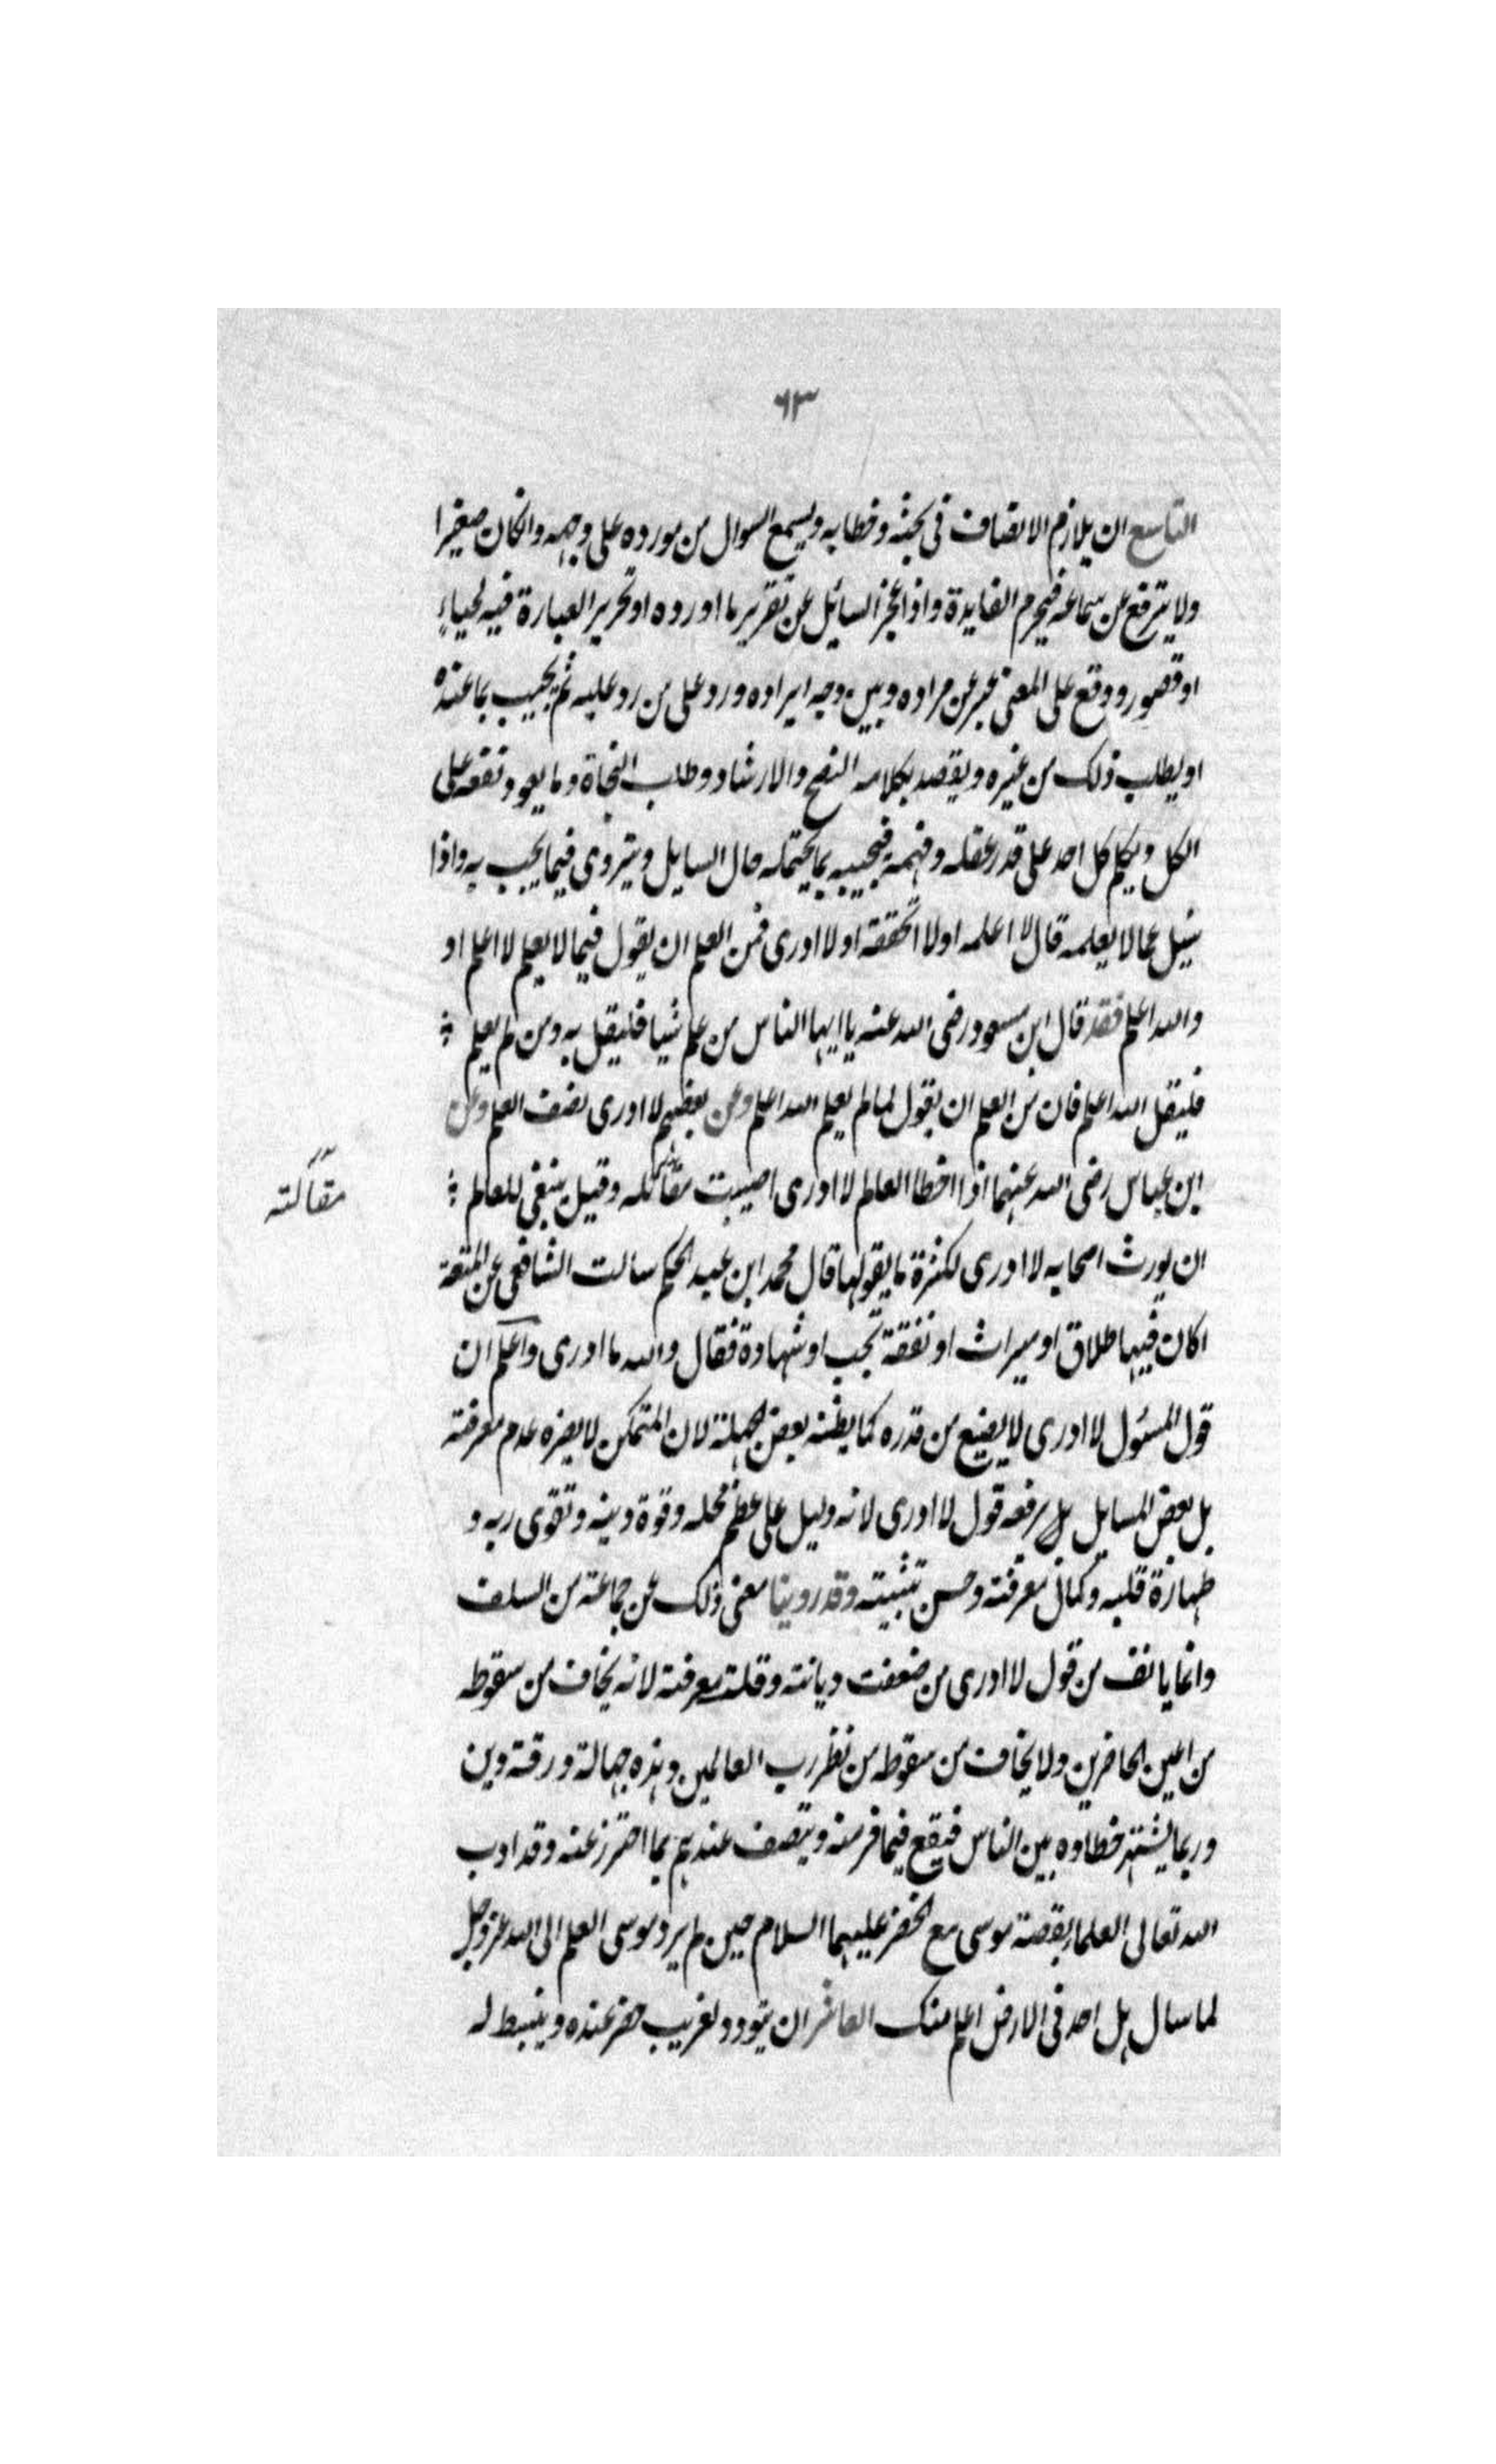 ٦٣
التاسع ان يلازم الانصاف فى بحثه وخطابه ويسمع السوال من مورده على وجهه وان كان صغيرا
ولا يترفع عن سماعه فيحرم الفايدة واذا عجز السائل عن تقرير ما اورده او تحرير العبارة فيه لحياءٍ
او قصور ووقع على المعنى عبر عن مراده وبين وجه ايراده ورد على من رد عليه ثم يجيب بما عنده
او يطلب ذلك من غيره ويقصد بكلامه النصح والارشاد وطلب النجاة وما يعود نفعه على
الكل ويكلم كل احد على قدر عقله وفهمه فيجيبه بما يحتمله حال السايل ويتروى فيما يجيب به واذا
سئل عما لا يعلمه قال لا اعلمه او لا اتحققه او لا ادرى فمن العلم ان يقول فيما لا يعلم لا اعلم او
والله اعلم فقد قال ابن مسعود رضى الله عنه يا ايها الناس من علم شيا فليقل به ومن لم يعلم
فليقل الله اعلم فان من العلم ان يقول لما لم يعلم الله اعلم وعن بعضهم لا ادرى نصف العلم وعن
ابن عباس رضى الله عنهما اذا اخطا العالم لا ادرى اصيبت مقاتله وقيل ينبغى للعالم
مقالته
ان يورث اصحابه لا ادرى لكثرة ما يقولها قال محمد ابن عبد الحكم سالت الشافعى عن المتعة
اكان فيها طلاق او ميراث او نفقة تجب او شهادة فقال والله ما ادرى واعلم ان
قول المسئول لا ادرى لا يضيع من قدره كما يظنه بعض الجهلة لان المتمكن لا يضره عدم معرفته
بل بعض المسايل بل يرفعه قول لا ادرى لانه دليل على عظم محله وقوة دينه وتقوى ربه و
طهارة قلبه وكمال معرفته وحسن تثبيته وقد روينا معنى ذلك عن جماعة من السلف
وانما يانف من قول لا ادرى من ضعفت ديانته وقلت معرفته لانه يخاف من سقوطه
من اعين الحاضرين ولا يخاف من سقوطه من نظر رب العالمين وهذه جهالة ورقة دين
وربما يشتهر خطاوه بين الناس فيقع فيما فر منه ويتصف عندهم بما احترز عنه وقد ادب
الله تعالى العلما بقصة موسى مع الخضر عليهما السلام حين لم يرد موسى العلم الى الله عز وجل
لما سال هل احد فى الارض اعلم منك العاشر ان يتودد لغريب حضر عنده وينبسط له